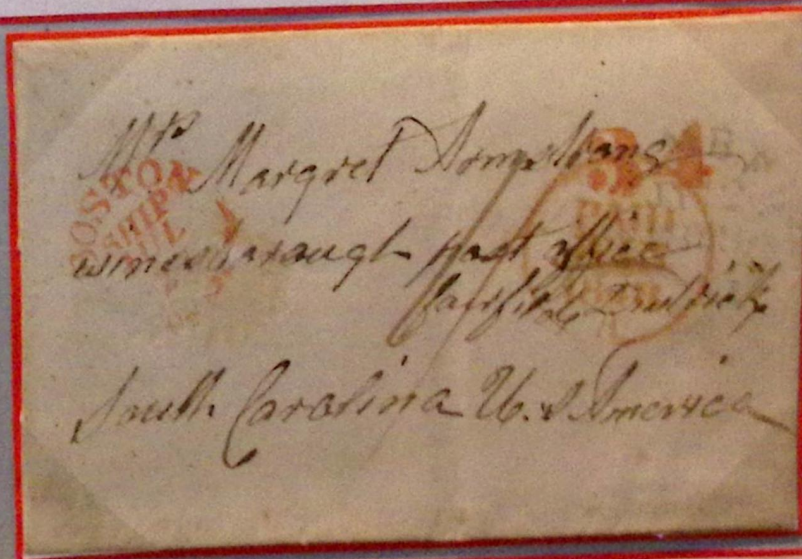 Mrs Margret Armstrong
winnsborough post office
fairfield District
South Carolina U. S. America
BOSTON
SHIP
JUL
PAID